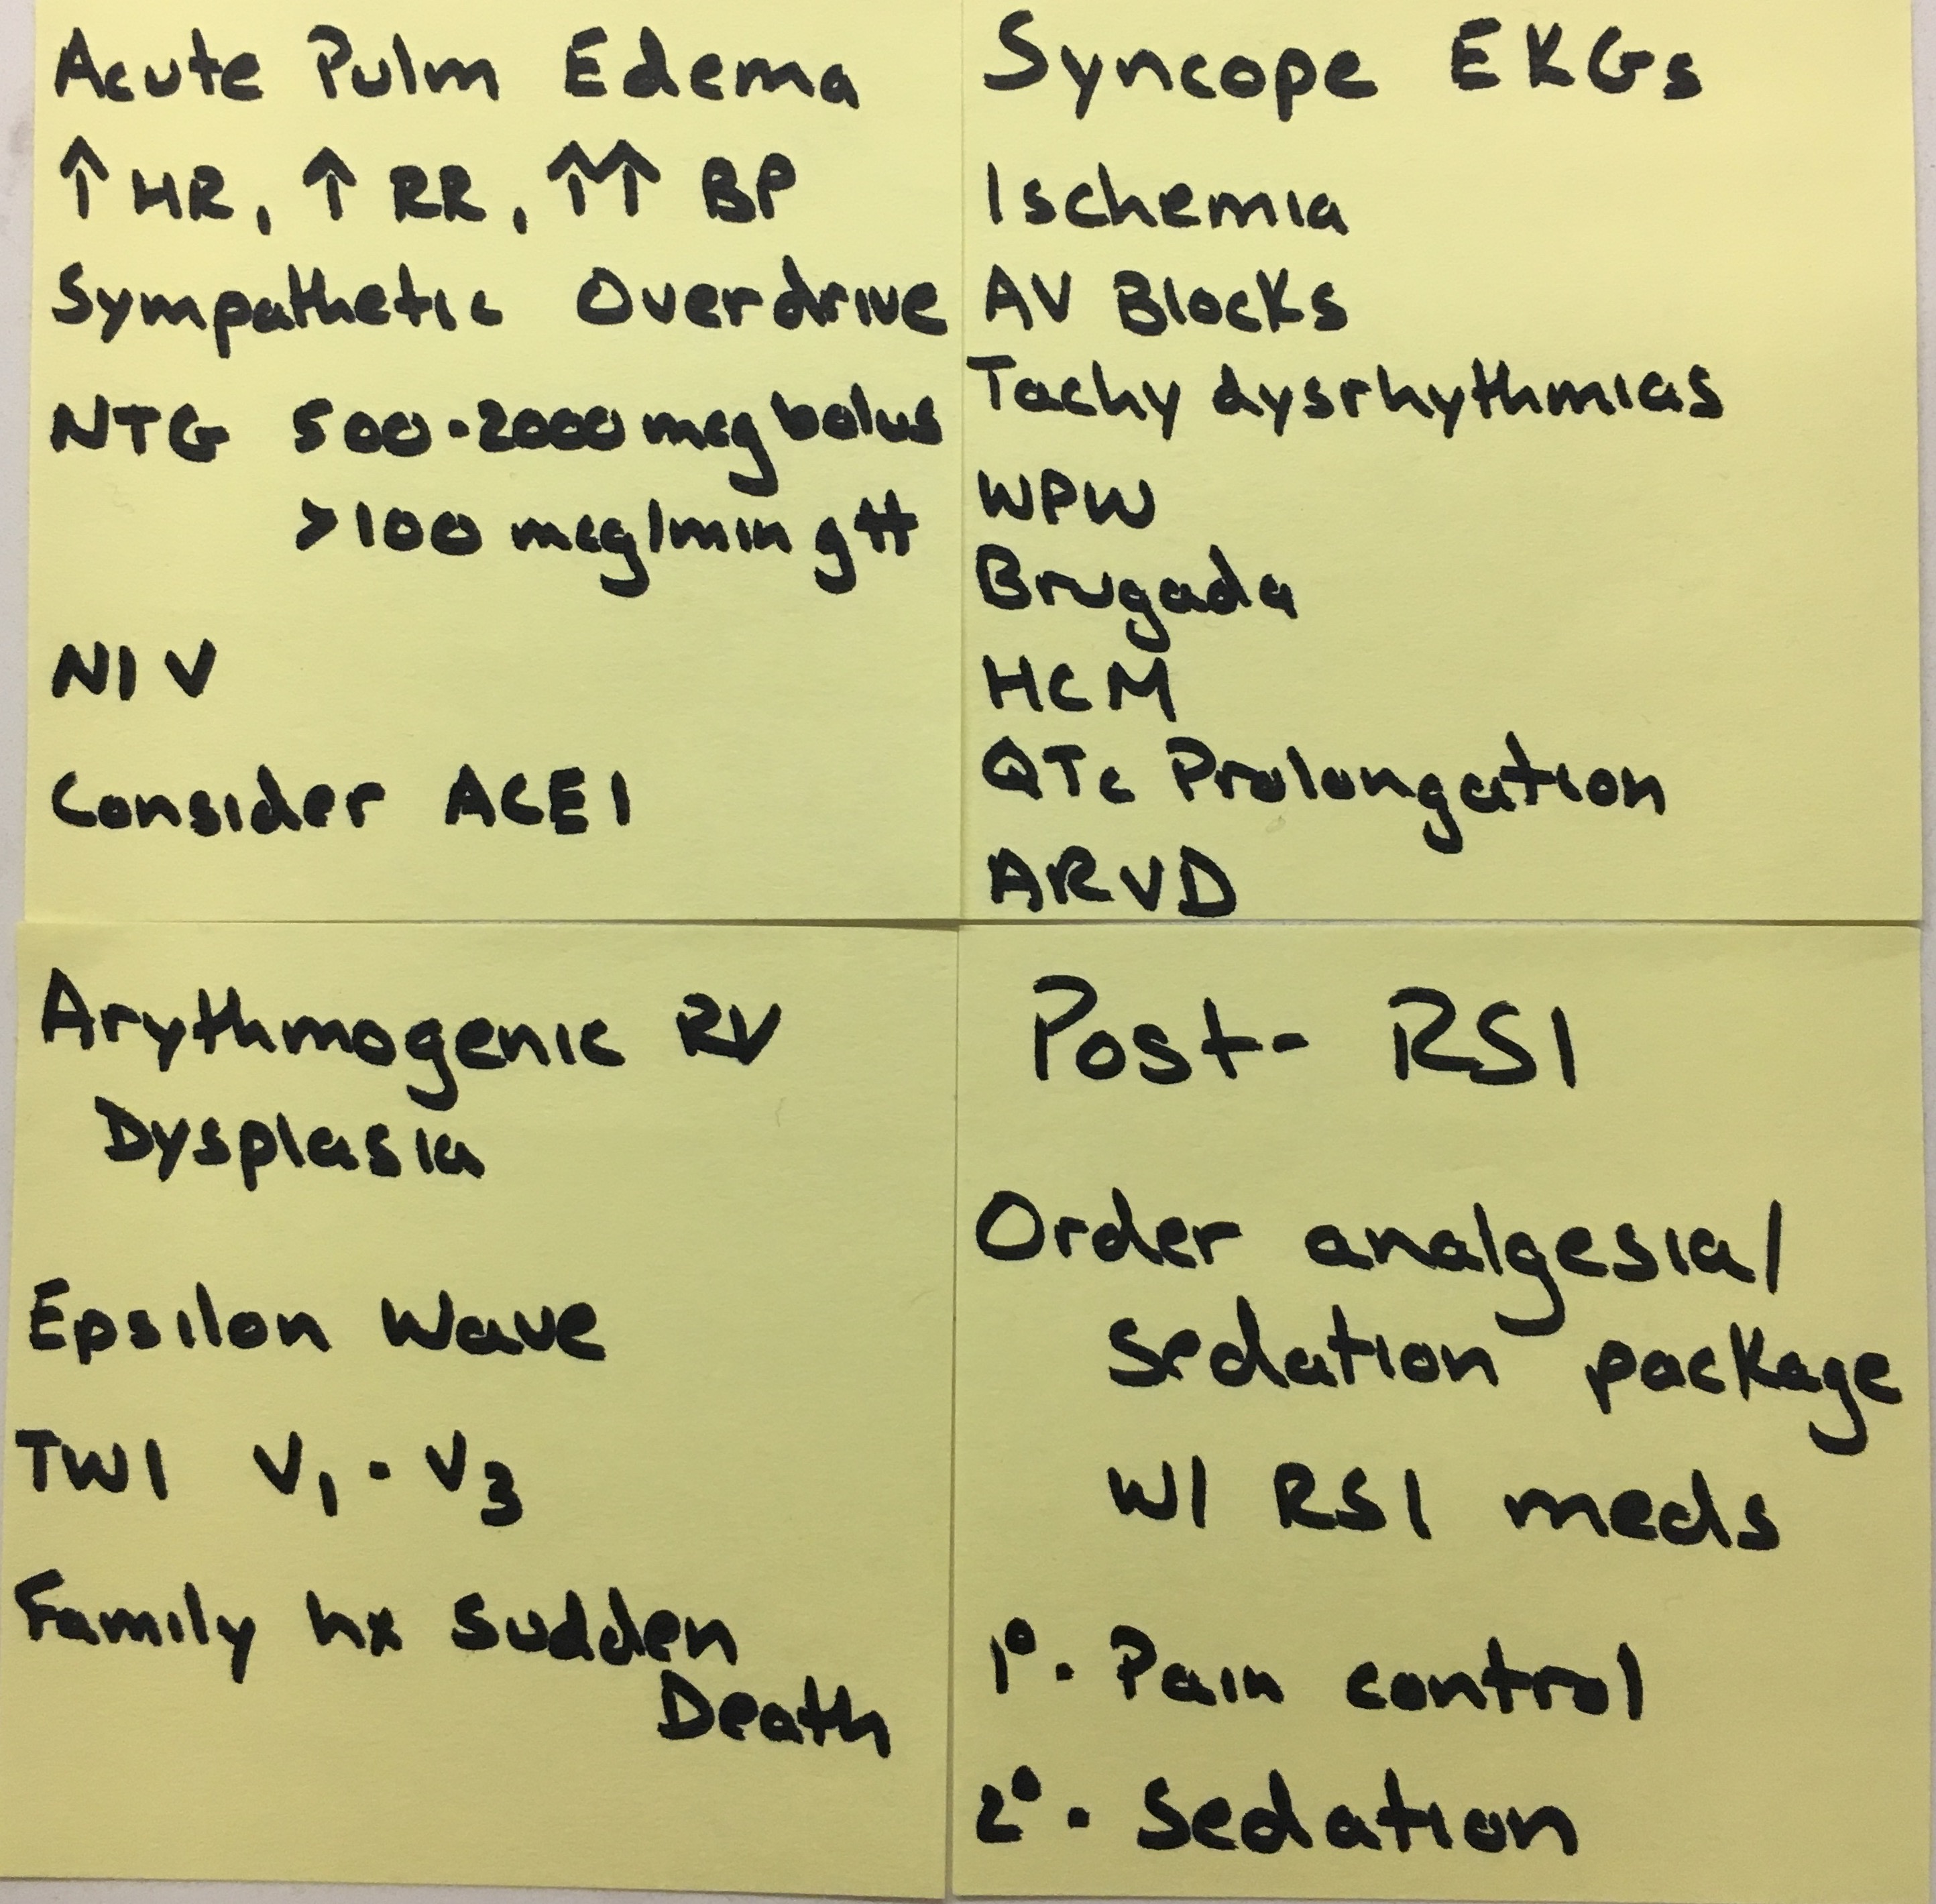 Acute Pulm Edema
↑ HR, ↑ RR, ↑↑ BP
Sympathetic Overdrive
NTG 500-2000 mcg bolus
>100 mcg/min gtt
NIV
Consider ACEI
Syncope EKGs
Ischemia
AV Blocks
Tachy dysrhythmias
WPW
Brugada
HCM
QTc Prolongation
ARVD
Arythmogenic RV
Dysplasia
Epsilon Wave
TWI V1-V3
Family hx Sudden
Death
Post-RSI
Order analgesia/
sedation package
w/ RSI meds
1°- Pain control
2°- Sedation